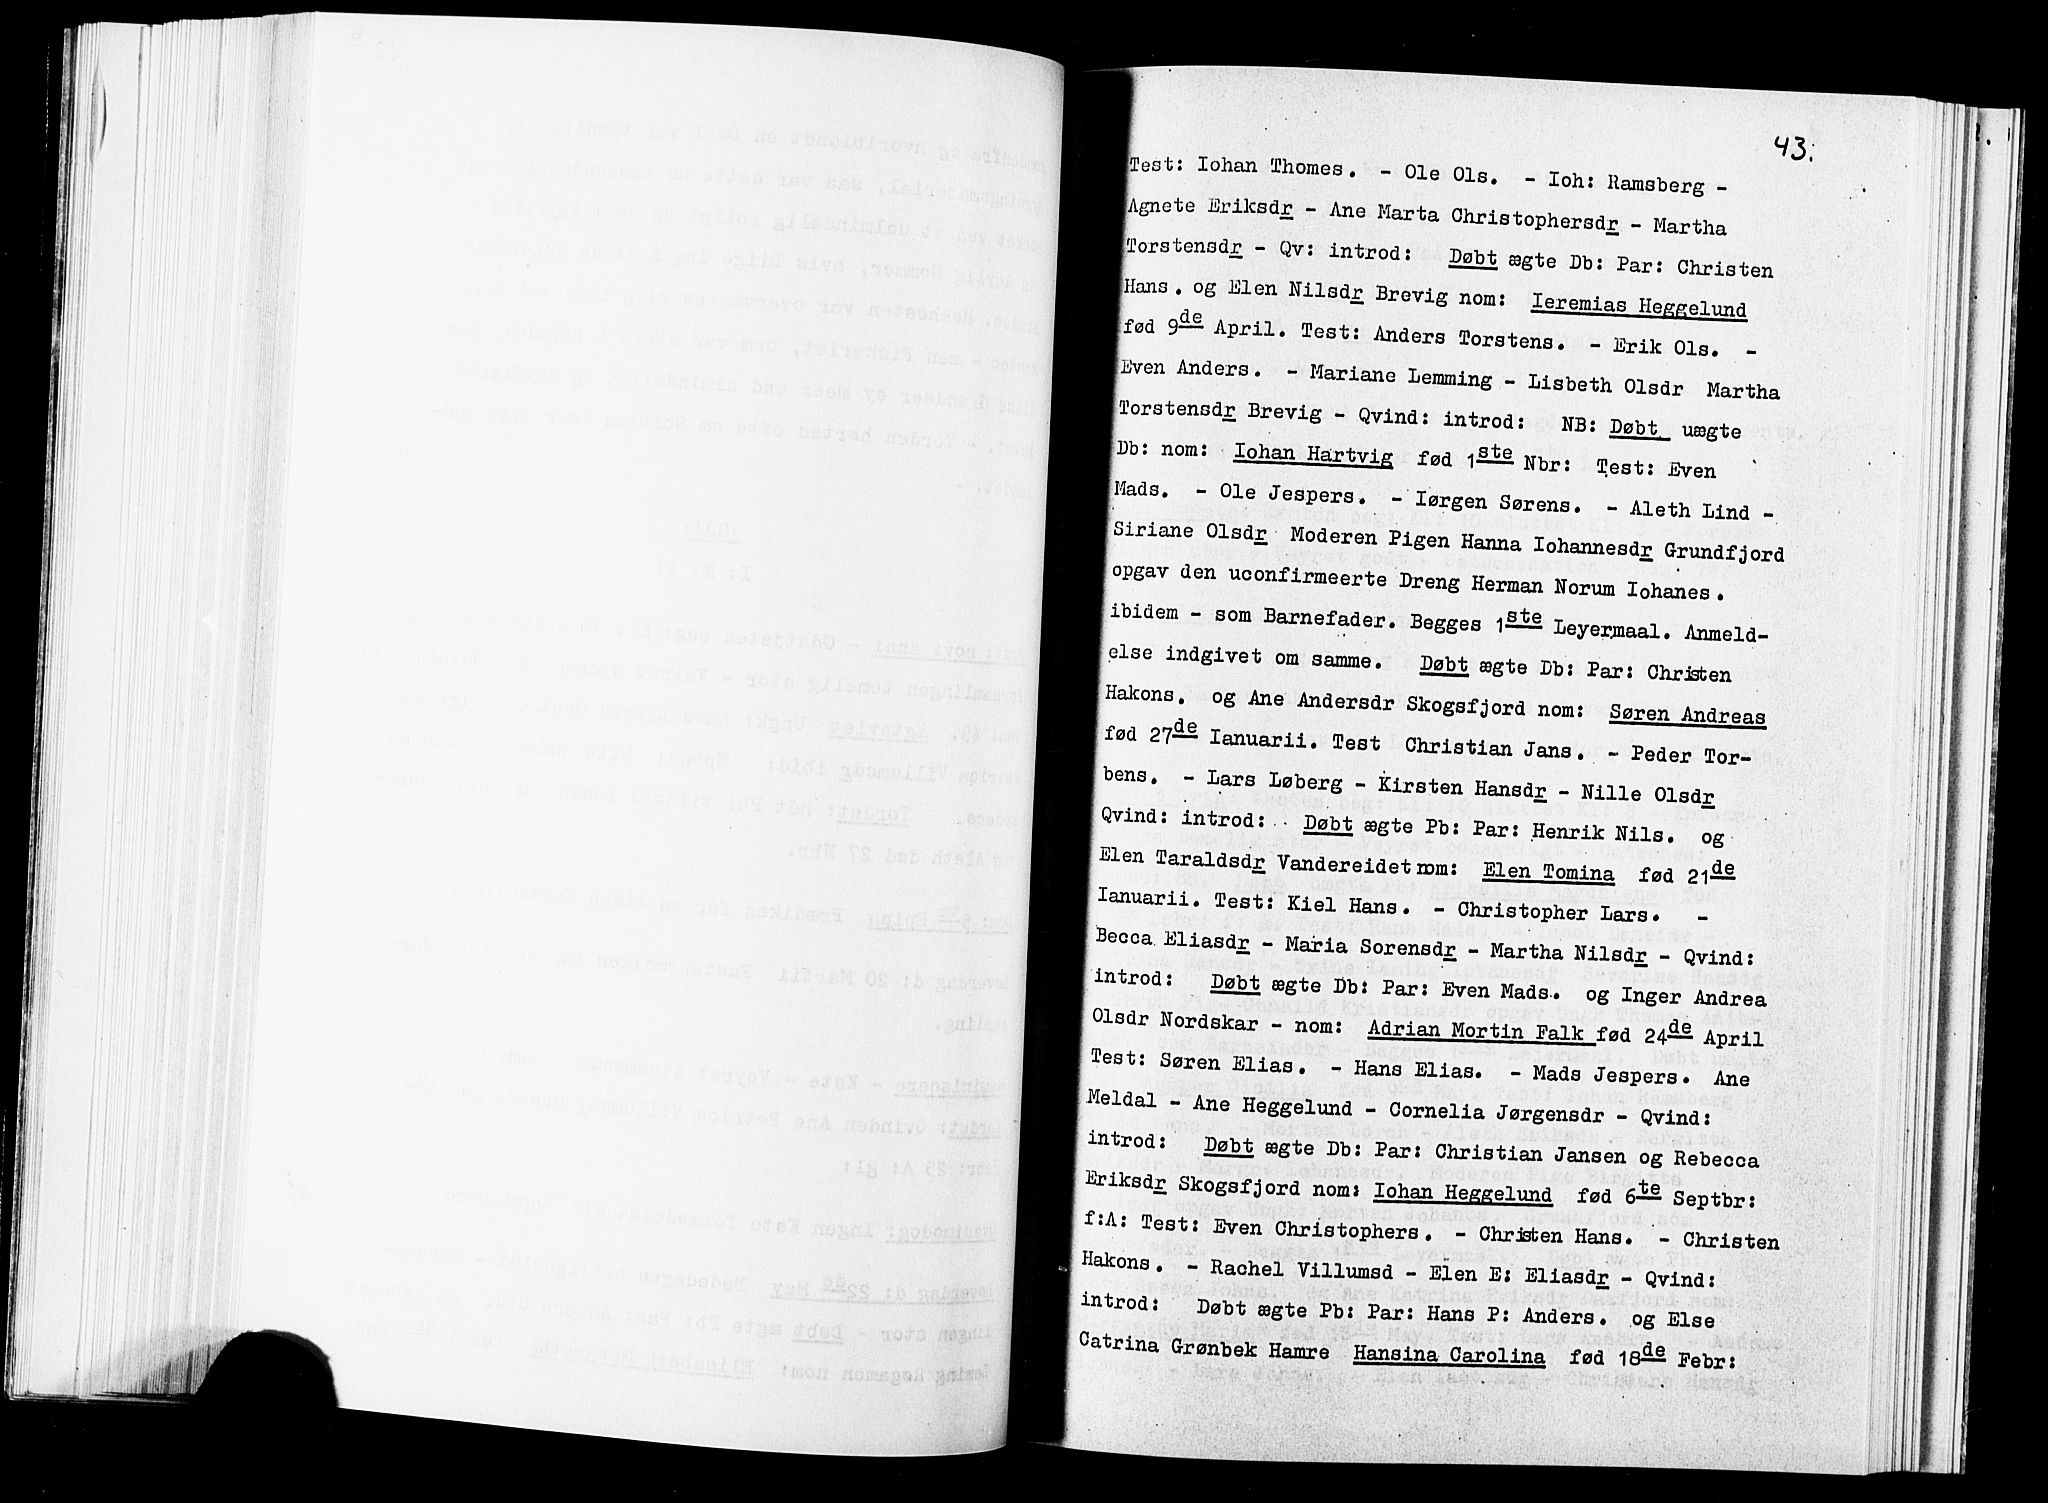 43.
Test: Iohan Thomes. - Ole Ols. - Ioh: Ramsberg -
Agnete Eriksdr - Ane Marta Christophersdr - Martha
Torstensdr - Qv: introd: Døbt ægte Db: Par: Christen
Hans. og Elen Nilsdr Brevig nom: Ieremias Heggelund
fød 9de April. Test: Anders Torstens. - Erik Ols. -
Even Anders. - Mariane Lemming - Lisbeth Olsdr Martha
Torstensdr Brevig - Qvind: introd: NB: Døbt uægte
Db: nom: Iohan Hartvig fød 1ste Nbr: Test: Even
Mads. - Ole Jespers. - Iørgen Sørens. - Aleth Lind -
Siriane Olsdr Moderen Pigen Hanna Iohannesdr Grundfjord
opgav den uconfirmeerte Dreng Herman Norum Iohanes.
ibidem - som Barnefader. Begges 1ste Leyermaal. Anmeld-
else indgivet om samme. Døbt ægte Db: Par: Christen
Hakons. og Ane Andersdr Skogsfjord nom: Søren Andreas
fød 27de Ianuarii. Test Christian Jans. - Peder Tor-
bens. - Lars Løberg - Kirsten Hansdr - Nille Olsdr
Qvind: introd: Døbt ægte Pb: Par: Henrik Nils. og
Elen Taraldsdr Vandereidet nom: Elen Tomina fød 21de
Ianuarii. Test: Kiel Hans. - Christopher Lars. -
Becca Eliasdr - Maria Sorensdr - Martha Nilsdr - Qvind:
introd: Døbt ægte Db: Par: Even Mads. og Inger Andrea
Olsdr Nordskar - nom: Adrian Mortin Falk fød 24de April
Test: Søren Elias. - Hans Elias. - Mads Jespers. Ane
Meldal - Ane Heggelund - Cornelia Jørgensdr - Qvind:
introd: Døbt ægte Db: Par: Christian Jansen og Rebecca
Eriksdr Skogsfjord nom: Iohan Heggelund fød 6te Septbr:
f:A: Test: Even Christophers. - Christen Hans. - Christen
Hakons. - Rachel Villumsd - Elen E: Eliasdr - Qvind:
introd: Døbt ægte Pb: Par: Hans P: Anders. og Else
Catrina Grønbek Hamre Hansina Carolina fød 18de Febr: